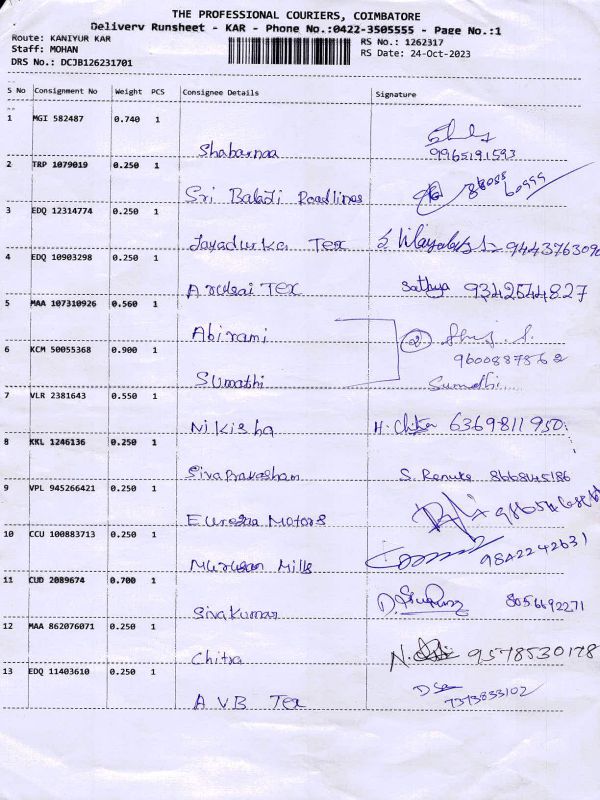 THE PROFESSIONAL COURIERS, COIMBATORE
Delivery Runsheet - KAR - Phone No.:0422-3505555 - Page No.:1
Route: KANIYUR KAR
RS No.: 1262317
Staff: MOHAN
RS Date: 24-Oct-2023
DRS No.: DCJB126231701
S No Consignment No Weight PCS Consignee Details Signature
1 MGI 582487 0.740 1
Shabarnaa 9965191593
2 TRP 1079019 0.250 1
Sri Balaji Roadlines
3 EDQ 12314774 0.250 1
Jayadurka Tex
4 EDQ 10903298 0.250 1
Arulsai Tex Sathya 9342544827
5 MAA 107310926 0.560 1
Abirami
6 KCM 50055368 0.900 1
9600887862
Sumathi Sumathi
7 VLR 2381643 0.550 1
Nikisha 6369811950
8 KKL 1246136 0.250 1
Sivaprakasham S. Renuka 8668145186
9 VPL 945266421 0.250 1
Eurotaa Motors
10 CCU 100883713 0.250 1
Murugan Mills 9842242631
11 CUD 2089674 0.700 1
Sivakumar 8056692271
12 MAA 862076071 0.250 1
Chitra 9578530178
13 EDQ 11403610 0.250 1
AVB Tex 7373833102